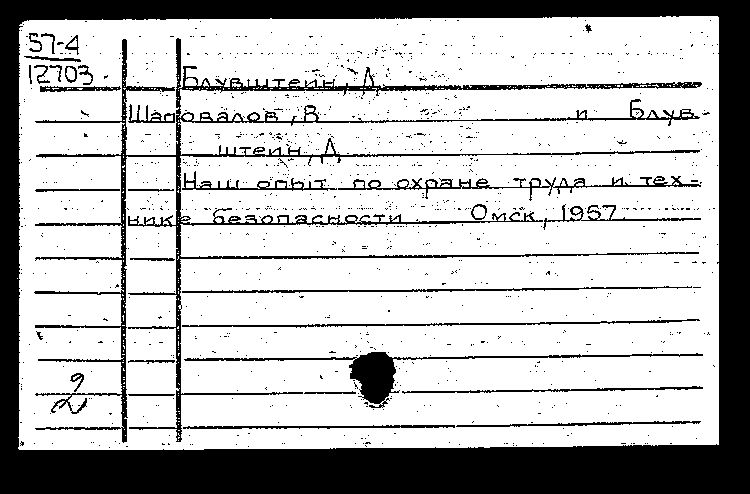 57-4
12703
Блувштейн, Д
Шаповалов, В и Блув-
штейн, Д
Наш опыт по охране труда и тех-
нике безопасности Омск, 1957.
2